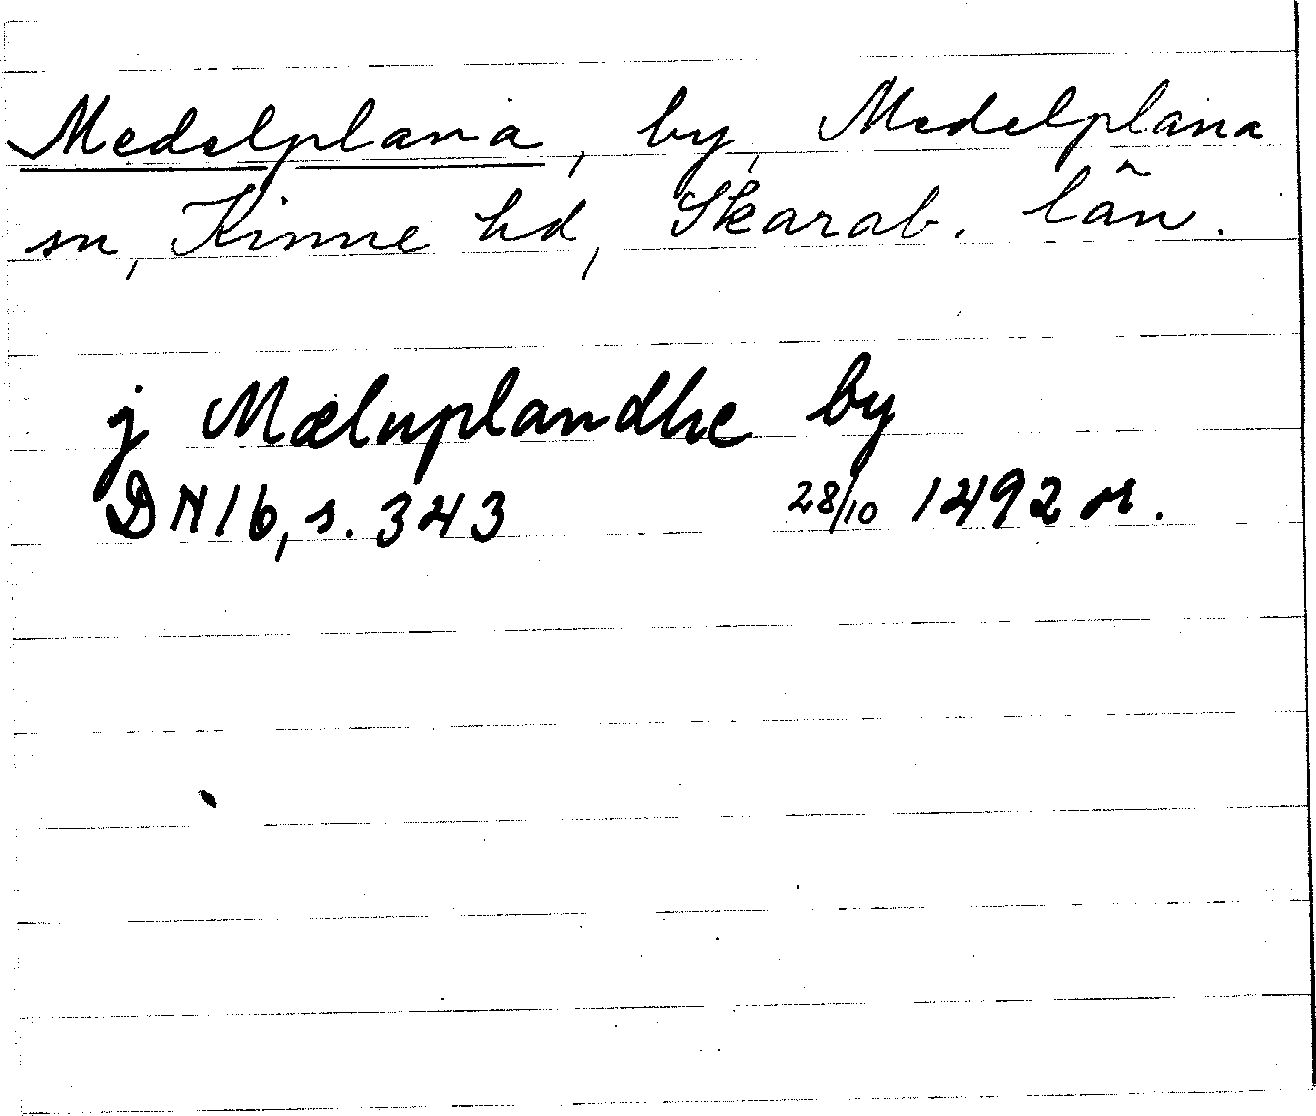 Medelplana, by, Medelplana
sn, Kinne hd, Skarab. län.
j Mæluplandhe by
DN 16, s. 343 28/10 1492 or.